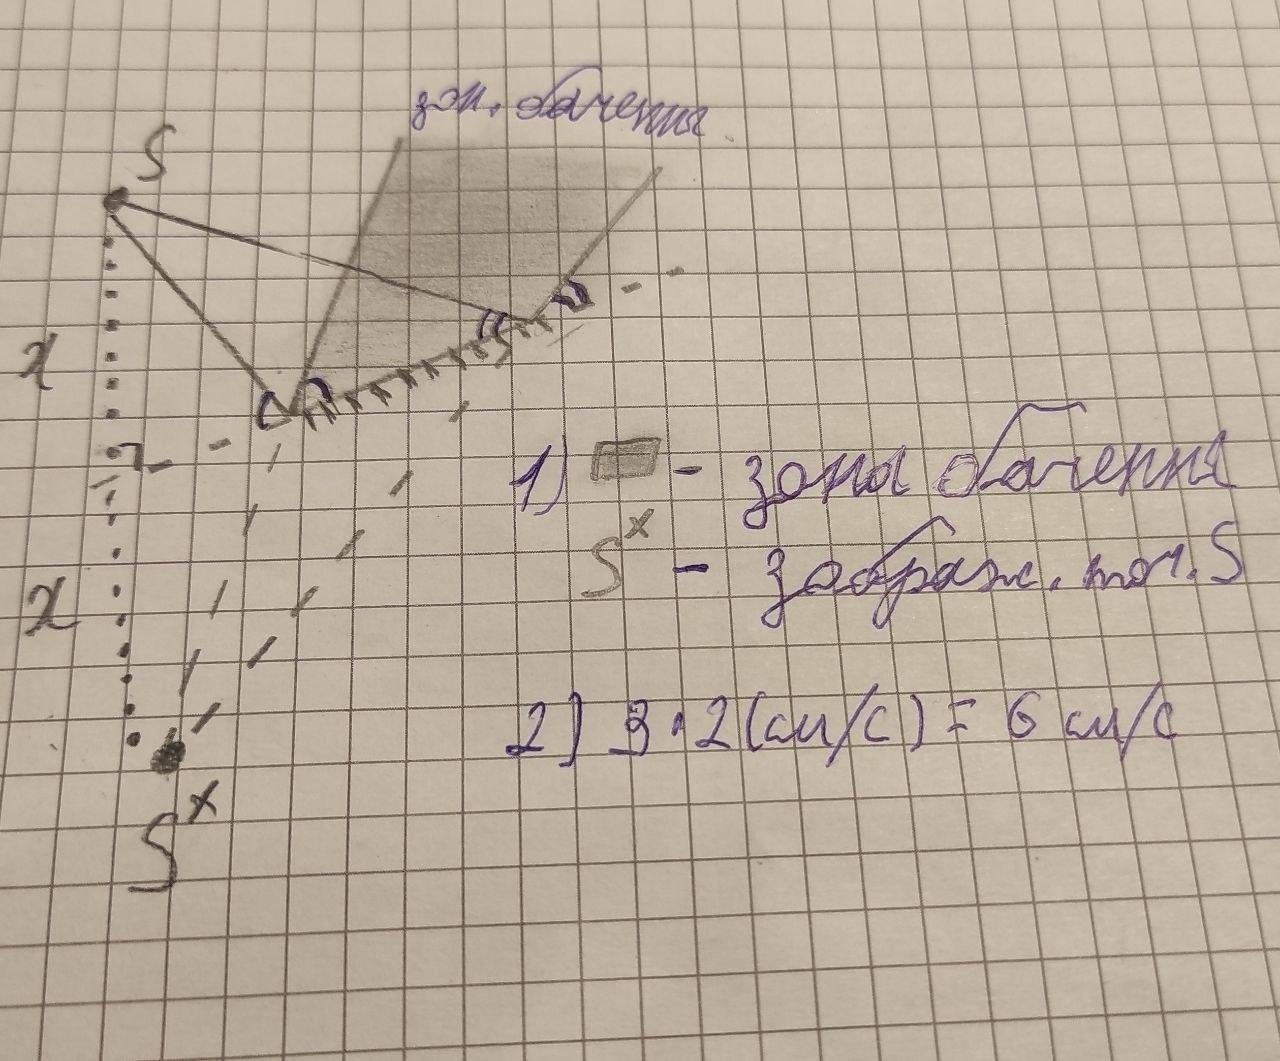 зон. бачення
S
x
1) - зона бачення
Sˣ - зображ. точ. S
x
2) 3 · 2 (см/с) = 6 см/с
Sˣ